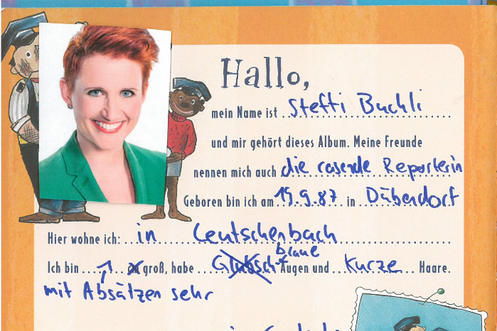 Hallo,
mein Name ist Steffi Buchli
und mir gehört dieses Album. Meine Freunde
nennen mich auch die rasende Reporterin
Geboren bin ich am 19.9.87 in Dübendorf
Hier wohne ich: in Leutschenbach
braune
Ich bin groß, habe Augen und kurze Haare.
mit Absätzen sehr